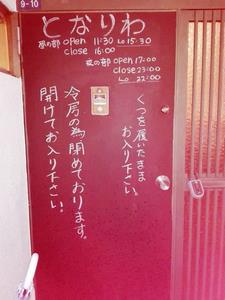 9-10
となりわ
昼の部 open 11:30 Lo 15:30
close 16:00
夜の部 open 17:00
close 23:00
Lo 22:00
くつを履いたまま
お入り下さい。
冷房の為閉めております。
開けてお入り下さい。